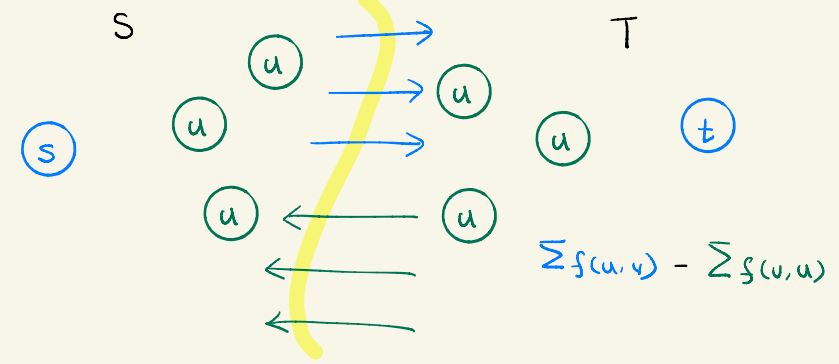 S
T
u
u
u
s
u
t
u
u
∑f(u,v) - ∑f(v,u)